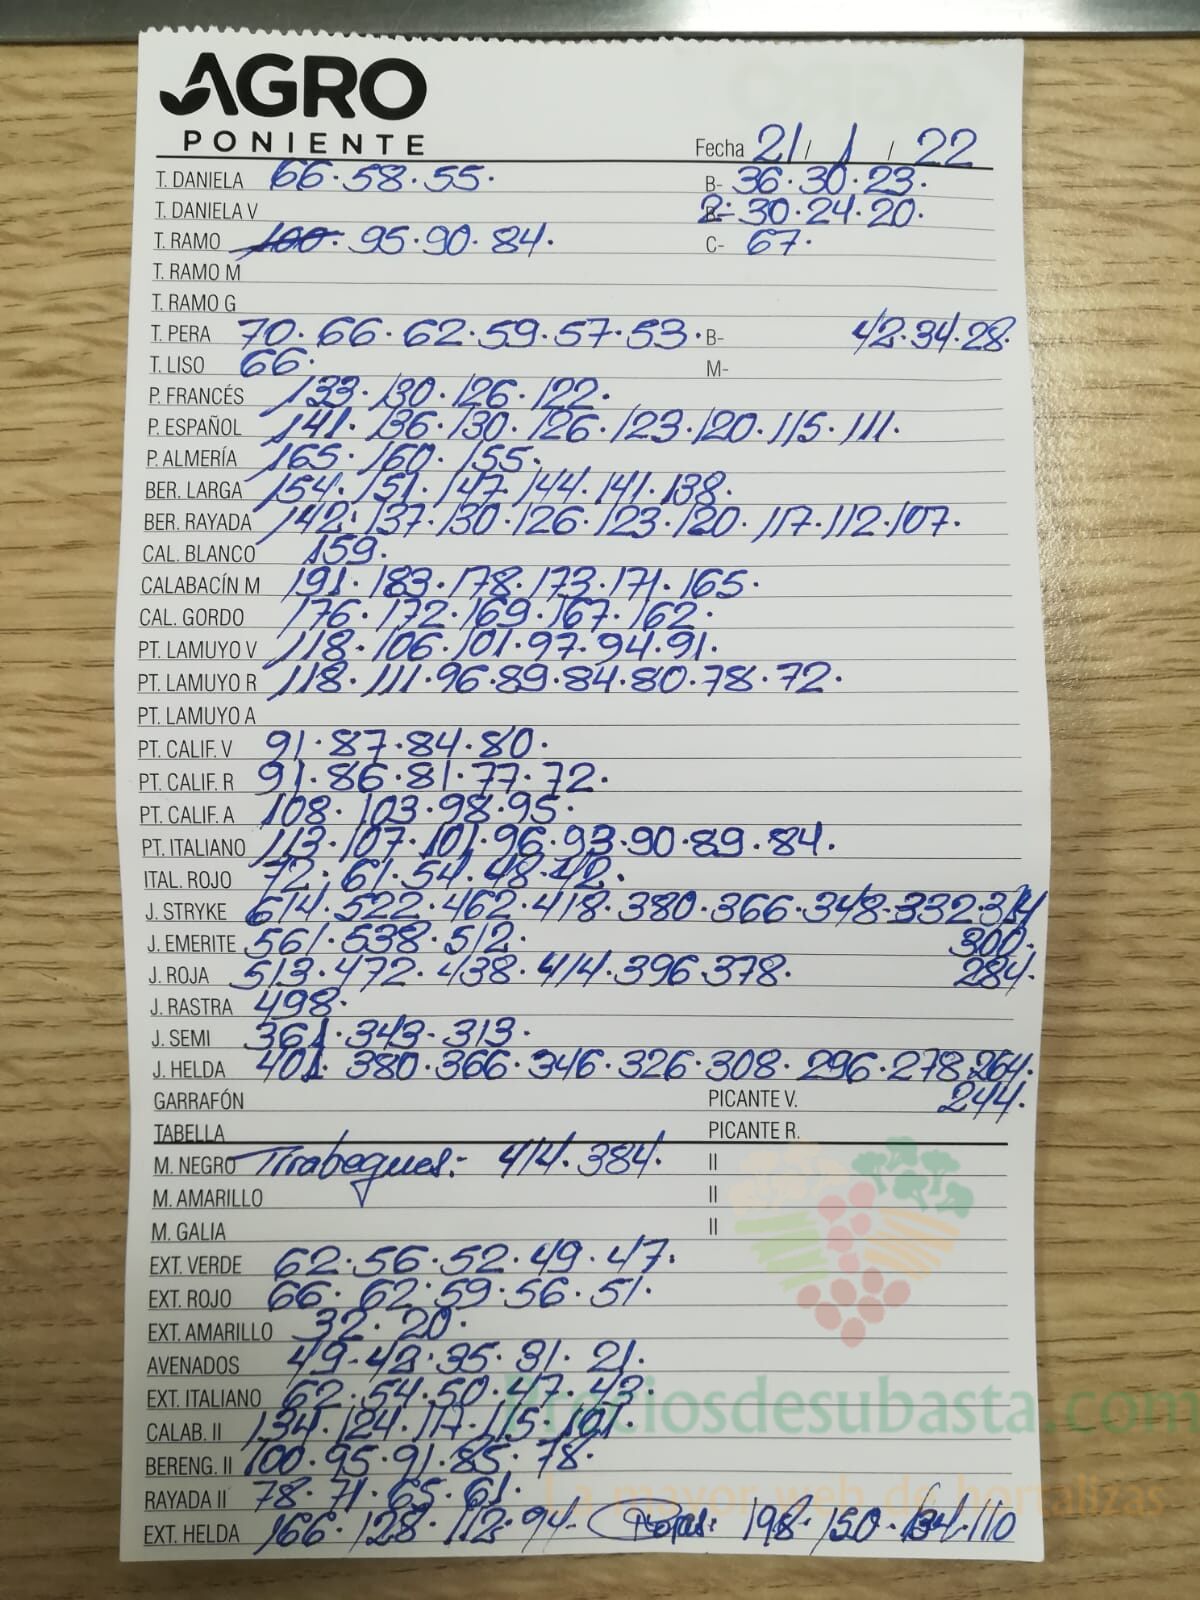 AGRO
PONIENTE
Fecha 21/ 1 / 22
T. DANIELA 66·58·55· B- 36·30·23·
T. DANIELA V 2- 30·24·20·
T. RAMO 100· 95·90·84· C- 67·
T. RAMO M
T. RAMO G
T. PERA 70·66·62·59·57·53· B- 42·34·28·
T. LISO 66· M-
P. FRANCÉS 133·130·126·122·
P. ESPAÑOL 141·136·130·126·123·120·115·111·
P. ALMERÍA 165·160·155·
BER. LARGA 154·151·147·144·141·138·
BER. RAYADA 142·137·130·126·123·120·117·112·107·
CAL. BLANCO 159·
CALABACÍN M 191·183·178·173·171·165·
CAL. GORDO 176·172·169·167·162·
PT. LAMUYO V 118·106·101·97·94·91·
PT. LAMUYO R 118·111·96·89·84·80·78·72·
PT. LAMUYO A
PT. CALIF. V 91·87·84·80·
PT. CALIF. R 91·86·81·77·72·
PT. CALIF. A 108·103·98·95·
PT. ITALIANO 113·107·101·96·93·90·89·84·
ITAL. ROJO 72·61·54·48·42·
J. STRYKE 614·522·462·418·380·366·348·332·314
J. EMERITE 561·538·512· 300·
J. ROJA 513·472·438·414·396·378· 284·
J. RASTRA 498·
J. SEMI 361·343·313·
J. HELDA 401·380·366·346·326·308·296·278·264·
GARRAFÓN PICANTE V. 244·
TABELLA PICANTE R.
M. NEGRO Tirabeques:- 414·384· II
M. AMARILLO II
M. GALIA II
EXT. VERDE 62·56·52·49·47·
EXT. ROJO 66·62·59·56·51·
EXT. AMARILLO 32·20·
AVENADOS 49·42·35·31·21·
EXT. ITALIANO 62·54·50·47·43·
Preciosdesubasta.com
CALAB. II 134·124·117·115·101·
BERENG. II 100·95·91·85·78·
RAYADA II 78·71·65·61·
La mayor web de hortalizas
EXT. HELDA 166·128·112·94- Rojas: 198·150·134·110